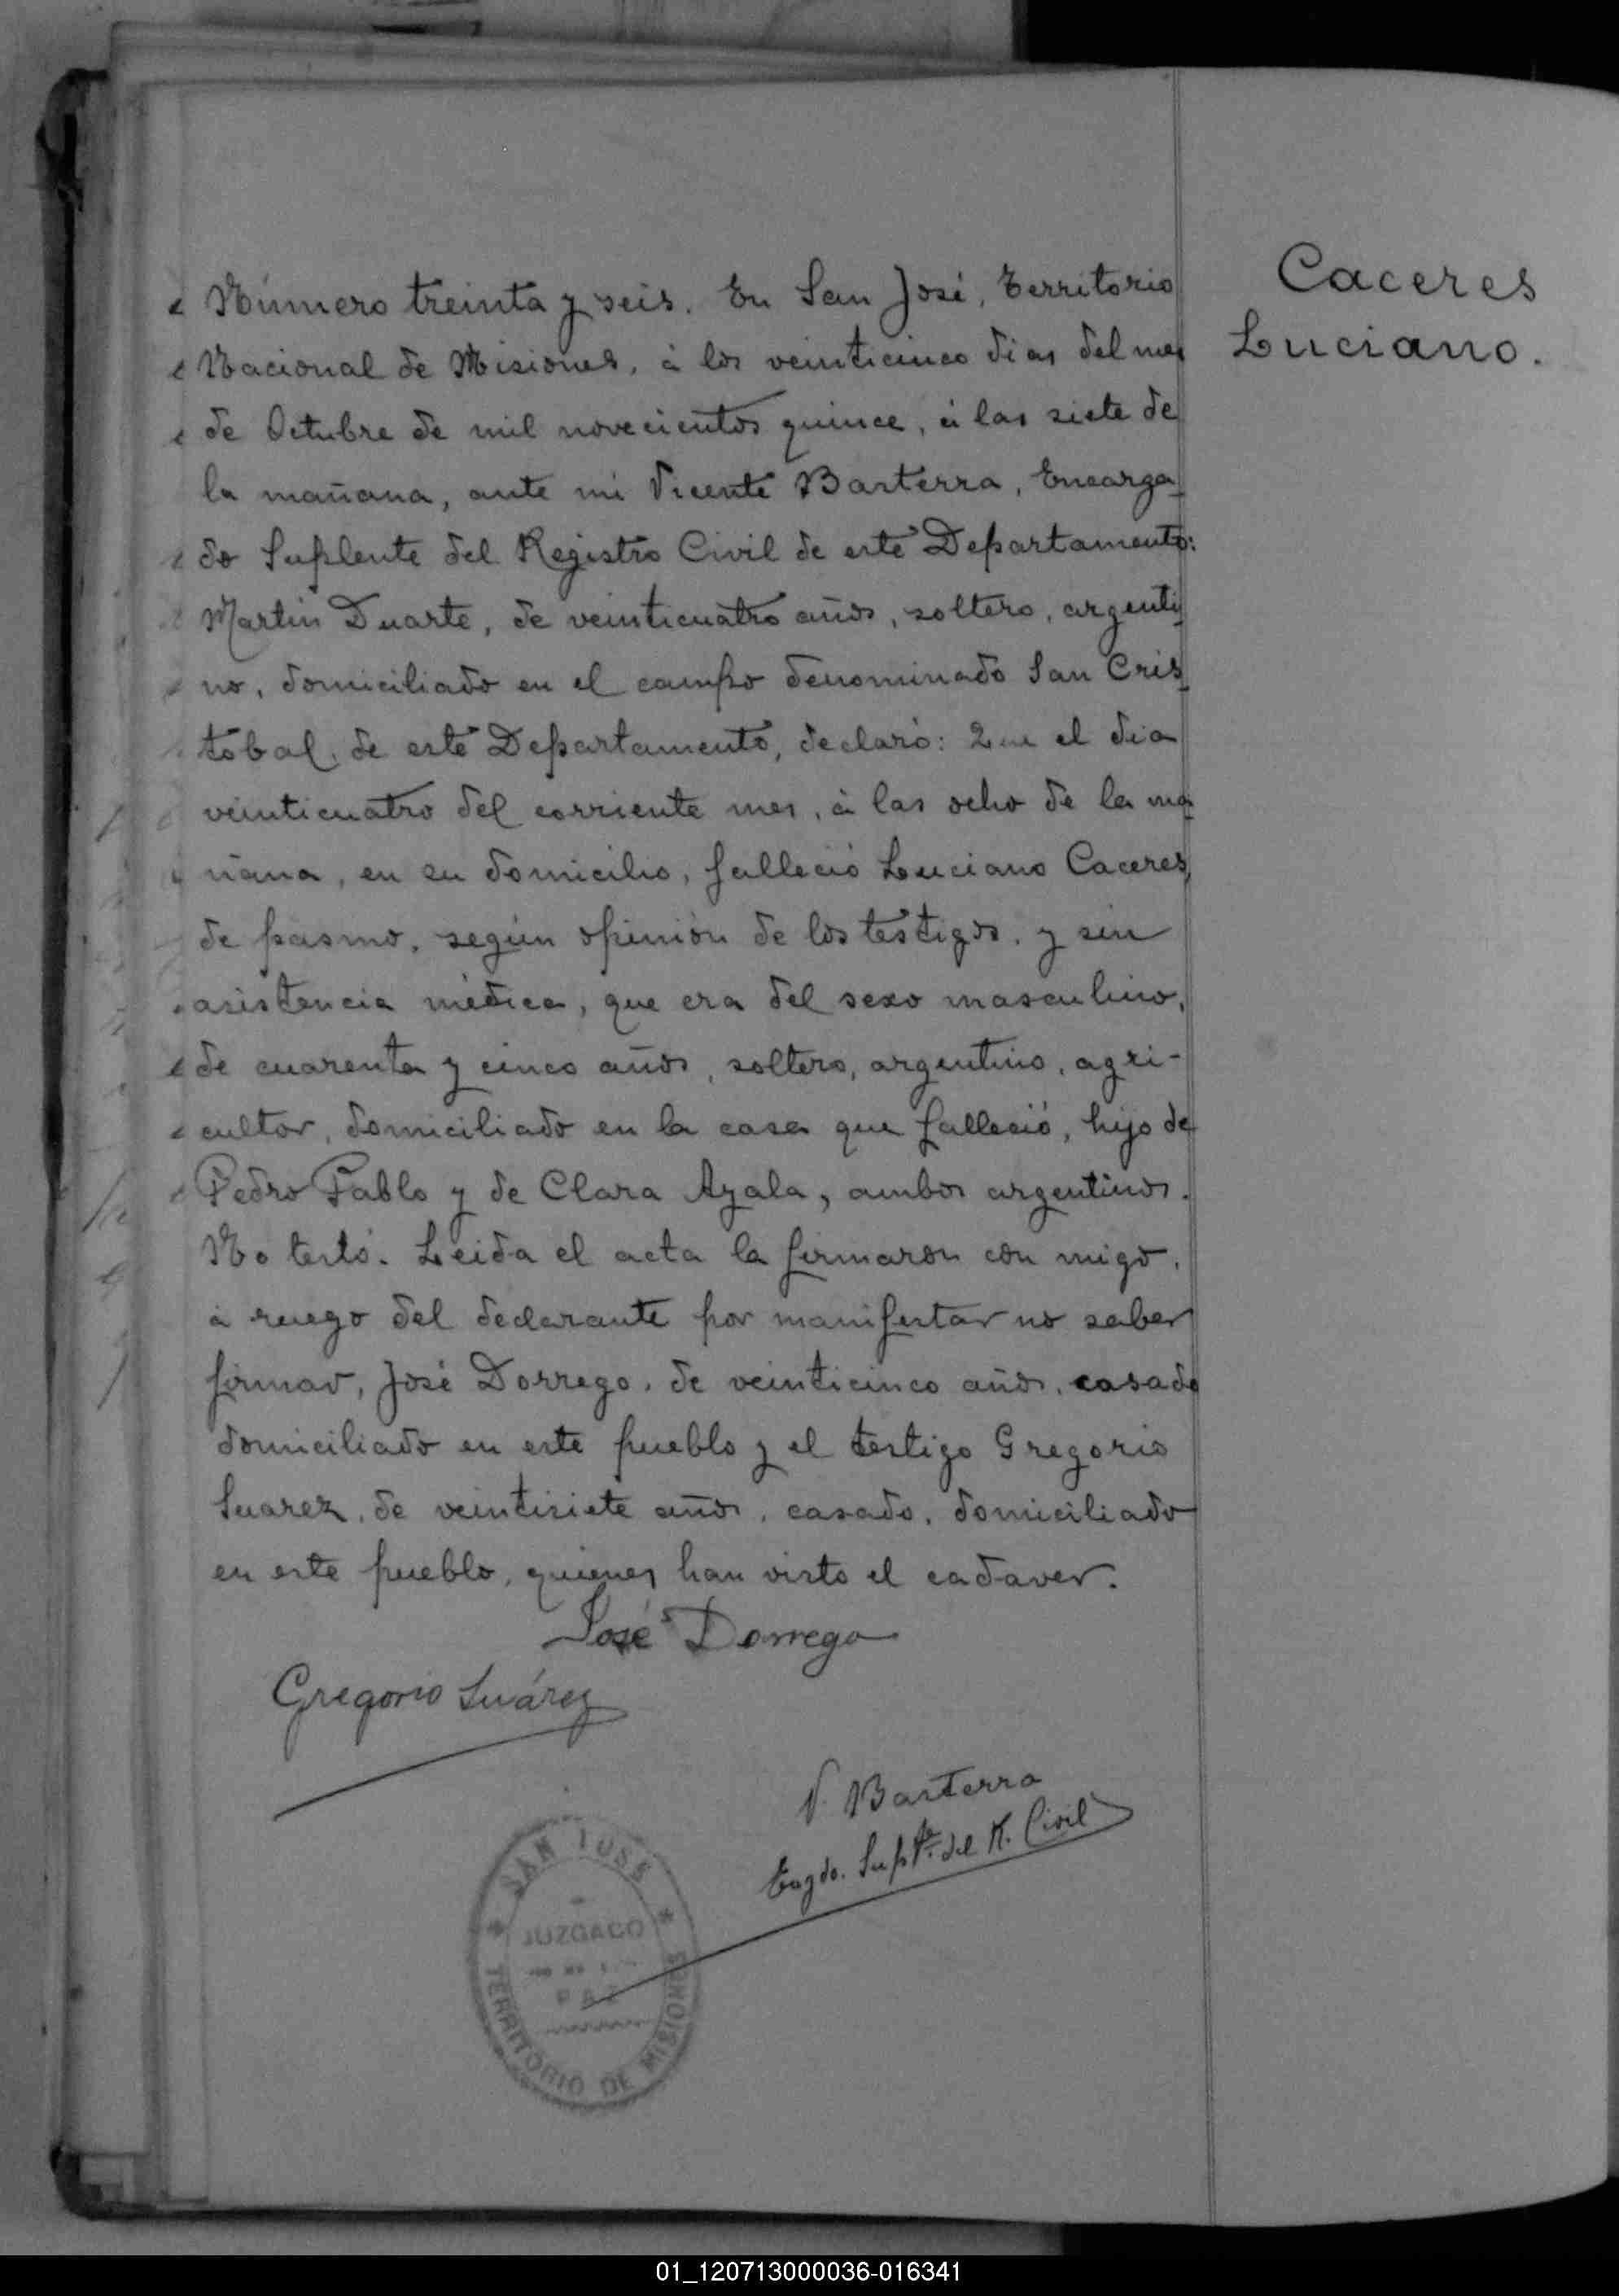 Caceres
Luciano.
Número treinta y seis. En San José, Territorio
Nacional de Misiones, á los veinticinco dias del mes
de Octubre de mil novecientos quince, á las siete de
la mañana, ante mi Vicente Barterra, Encarga-
do Suplente del Registro Civil de este Departamento:
Martin Duarte, de veinticuatro años, soltero, argenti-
no, domiciliado en el campo denominado San Cris-
tobal, de este Departamento, declaró: Que el dia
veinticuatro del corriente mes, á las ocho de la ma-
ñana, en su domicilio, falleció Luciano Caceres,
de pasmo, según opinión de los testigos, y sin
asistencia médica, que era del sexo masculino,
de cuarenta y cinco años, soltero, argentino, agri-
cultor, domiciliado en la casa que falleció, hijo de
Pedro Pablo y de Clara Ayala, ambos argentinos.
No testó. Leida el acta la firmaron con migo,
á ruego del declarante por manifestar no saber
firmar, José Dorrego, de veinticinco años, casado
domiciliado en este pueblo y el testigo Gregorio
Suarez, de veintisiete años, casado, domiciliado
en este pueblo, quienes han visto el cadaver.
José Dorrego
Gregorio Suárez
V. Basterra
Engdo. Supte. del R. Civil
SAN JOSÉ
JUZGADO
PAZ
TERRITORIO DE MISIONES
01_120713000036-016341